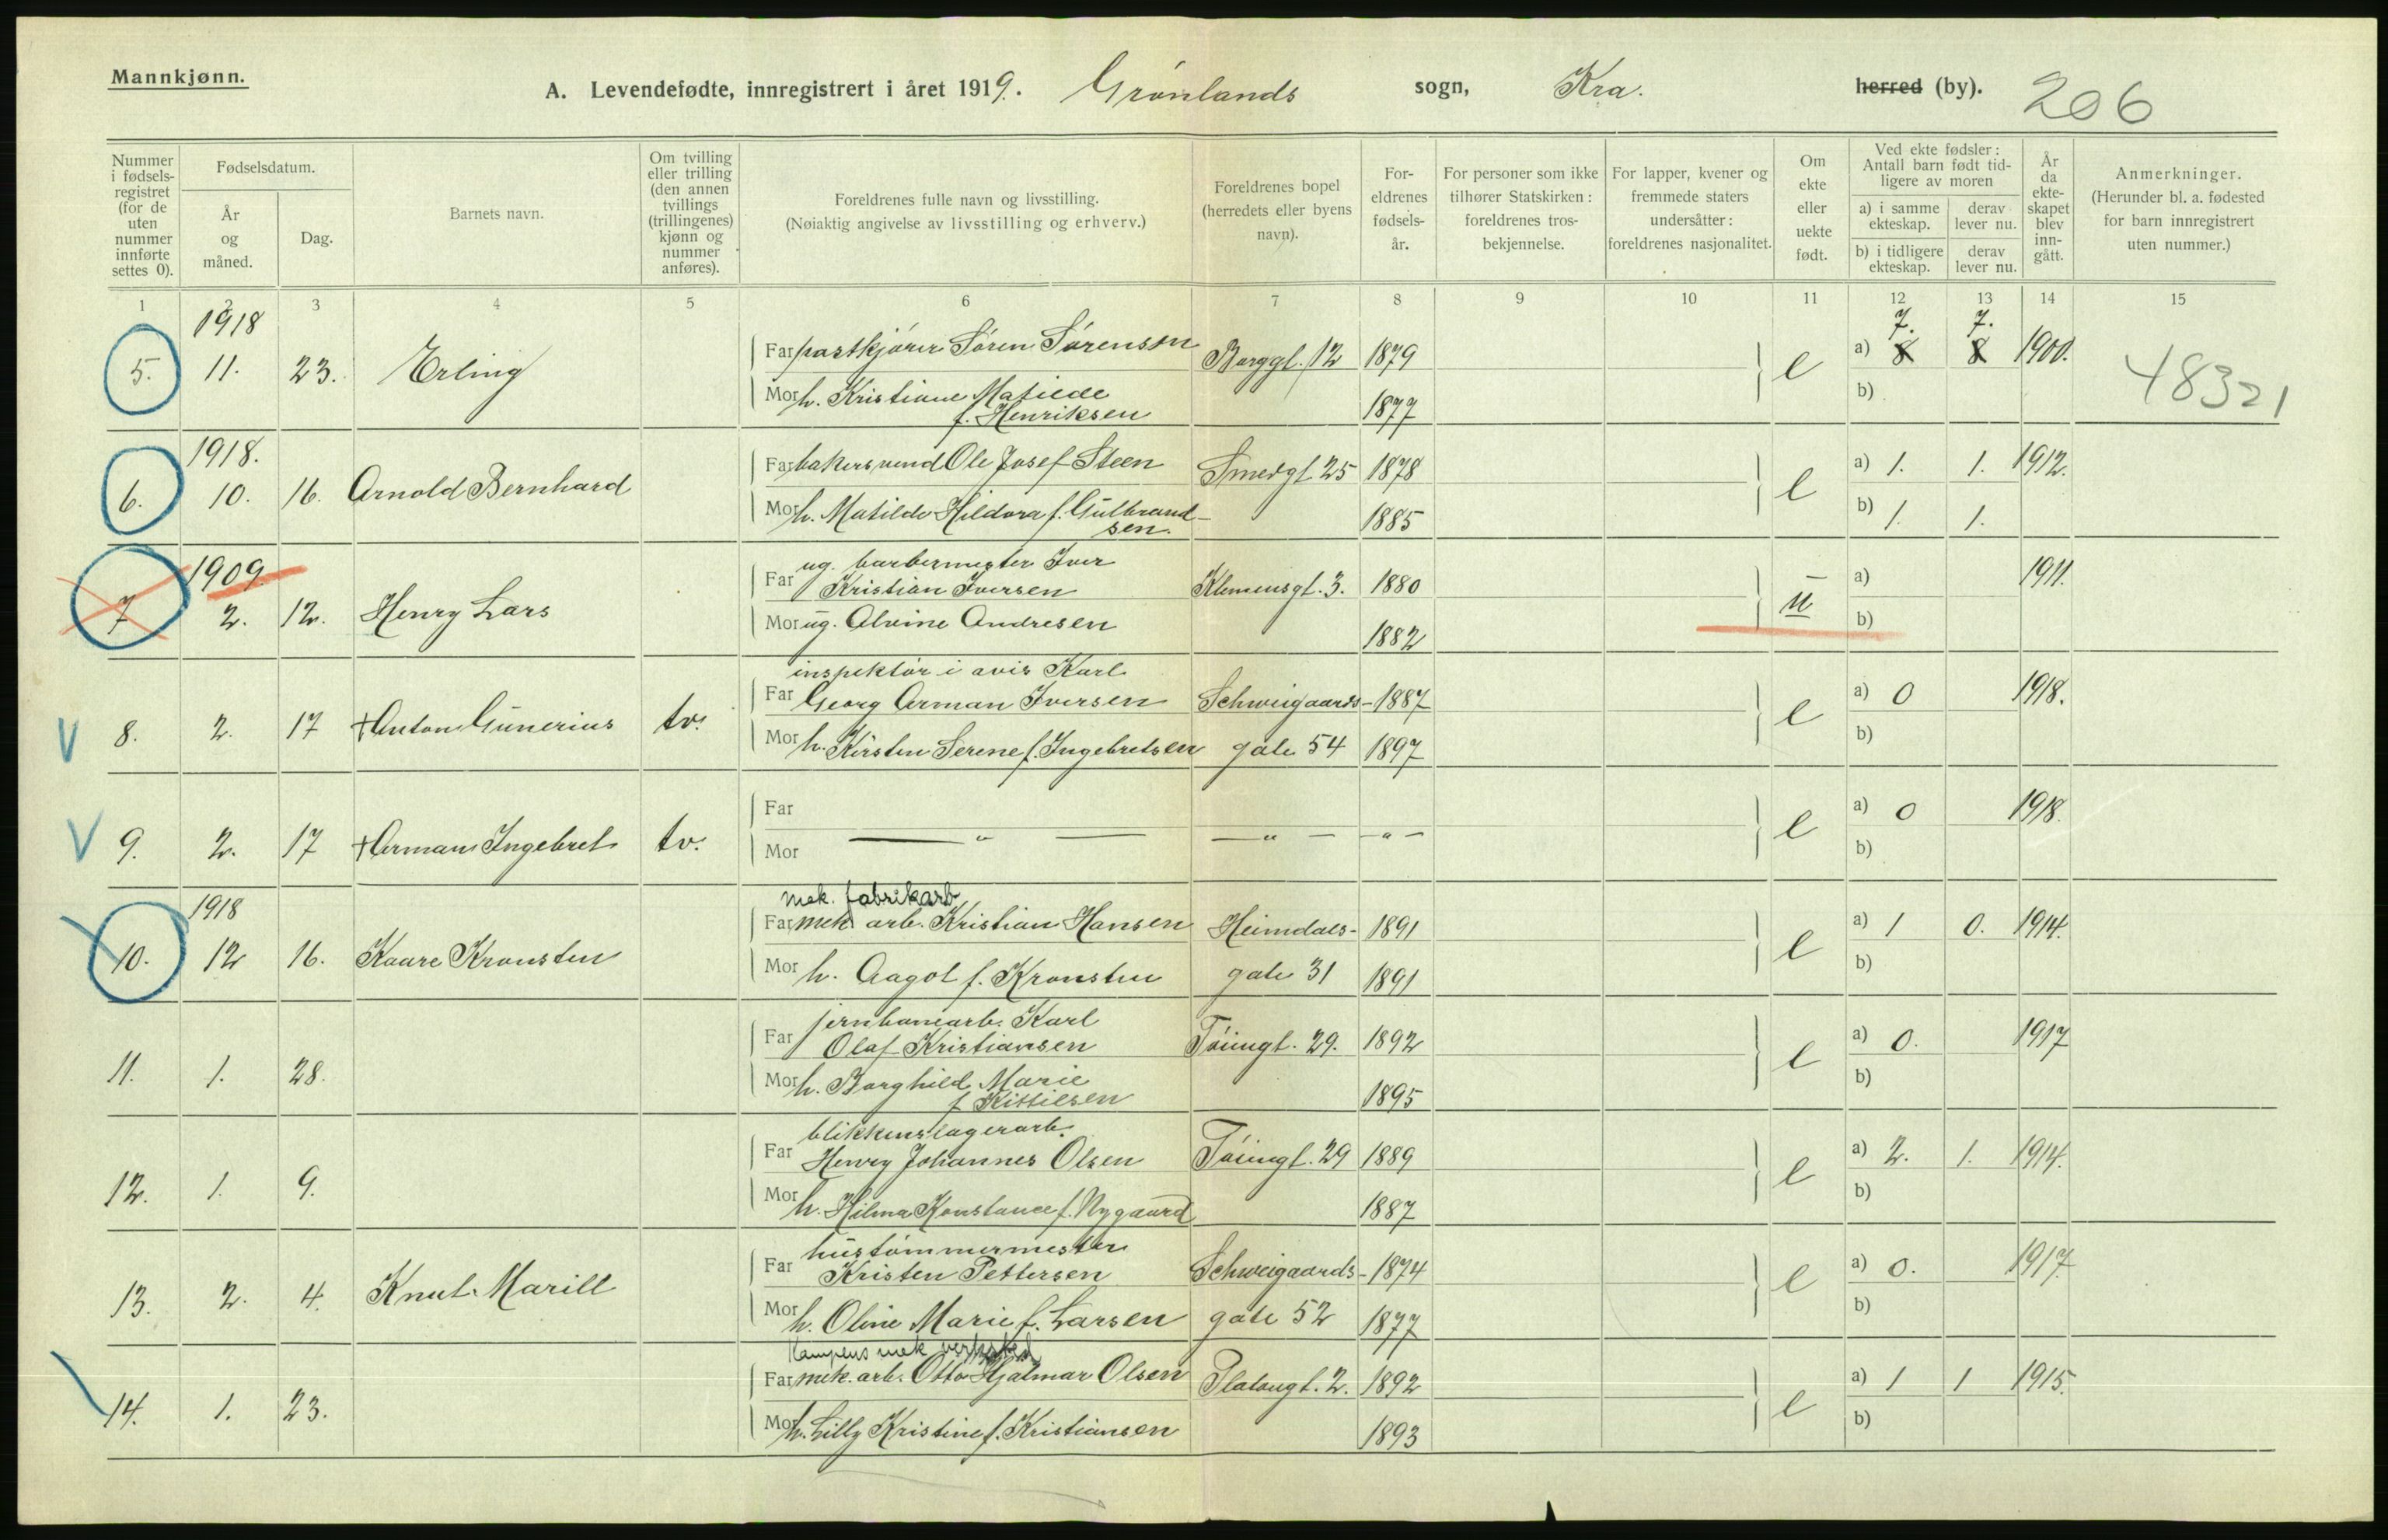 Mannkjønn.
A. Levendefødte, innregistrert i året 1919. Grønlands sogn, Kra. herred (by). 206
Nummer i fødsels-registret (for de uten nummer innførte settes 0).
Fødselsdatum.
År og måned.
Dag.
Barnets navn.
Om tvilling eller trilling (den annen tvillings (trillingenes) kjønn og nummer anføres).
Foreldrenes fulle navn og livsstilling.
(Nøiaktig angivelse av livsstilling og erhverv.)
Foreldrenes bopel (herredets eller byens navn).
For-eldrenes fødsels-år.
For personer som ikke tilhører Statskirken: foreldrenes tros-bekjennelse.
For lapper, kvener og fremmede staters undersåtter: foreldrenes nasjonalitet.
Om ekte eller uekte født.
Ved ekte fødsler: Antall barn født tid-ligere av moren
a) i samme ekteskap.
derav lever nu.
b) i tidligere ekteskap.
derav lever nu.
År da ekte-skapet blev inn-gått.
Anmerkninger.
(Herunder bl. a. fødested for barn innregistrert uten nummer.)
1 2 3 4 5 6 7 8 9 10 11 12 13 14 15
1918 7. 7.
5. 11. 23. Erling Far Søren Sørensen Borggt. 12 1879 e a) 8 8 1900. 48321
Mor h. Kristiane Matilde
f. Henriksen 1877 b)
1918.
6. 10. 16. Arnold Bernhard Far bakersvend Ole Josef Steen Smedgt 25 1878 e a) 1. 1. 1912.
Mor h. Matilde Hildora f. Gulbrand-
sen. 1885 b) 1. 1.
1909. ug. barbermester Iver
7 2. 12. Henry Lars Far Kristian Iversen Klemensgt. 3. 1880 u a) 1911.
Mor ug. Alvine Andresen 1882 b)
inspektør i avis Karl
V 8. 2. 17 +Anton Gunerius tv. Far Georg Arman Iversen Schweigaards- 1887 e a) 0 1918.
Mor h. Kirsten Serene f. Ingebretsen gate 54 1897 b)
V 9. 2. 17 +Arman Ingebret tv. Far — " — — " — - " - e a) 0 1918.
Mor b)
1918 mek. fabrikarb
10. 12 16. Kaare Kronsten Far mek arb. Kristian Hansen Heimdals- 1891 e a) 1 0. 1914.
Mor h. Aagot f. Kronsten gate 31 1891 b)
jernbanearb. Karl
11. 1. 28. Far Olaf Kristiansen Tøiengt. 29. 1892 e a) 0. 1917
Mor h. Borghild Marie
f Kittilsen 1895 b)
blikkenslagerarb.
12. 1. 9. Far Henry Johannes Olsen Tøiengt. 29 1889 e a) 2. 1. 1914.
Mor h. Hilma Konstance f. Nygaard 1887 b)
hustømmermester
13. 2. 4. Knut Marill Far Kristen Pettersen Schweigaards- 1874 e a) 0. 1917.
Mor h. Oline Marie f. Larsen gate 52 1877 b)
Kampens mek verksted
14. 1. 23. Far mek. arb. Otto Hjalmar Olsen Platougt. 2. 1892 e a) 1 1 1915.
Mor h. Lilly Kristine f. Kristiansen 1893 b)